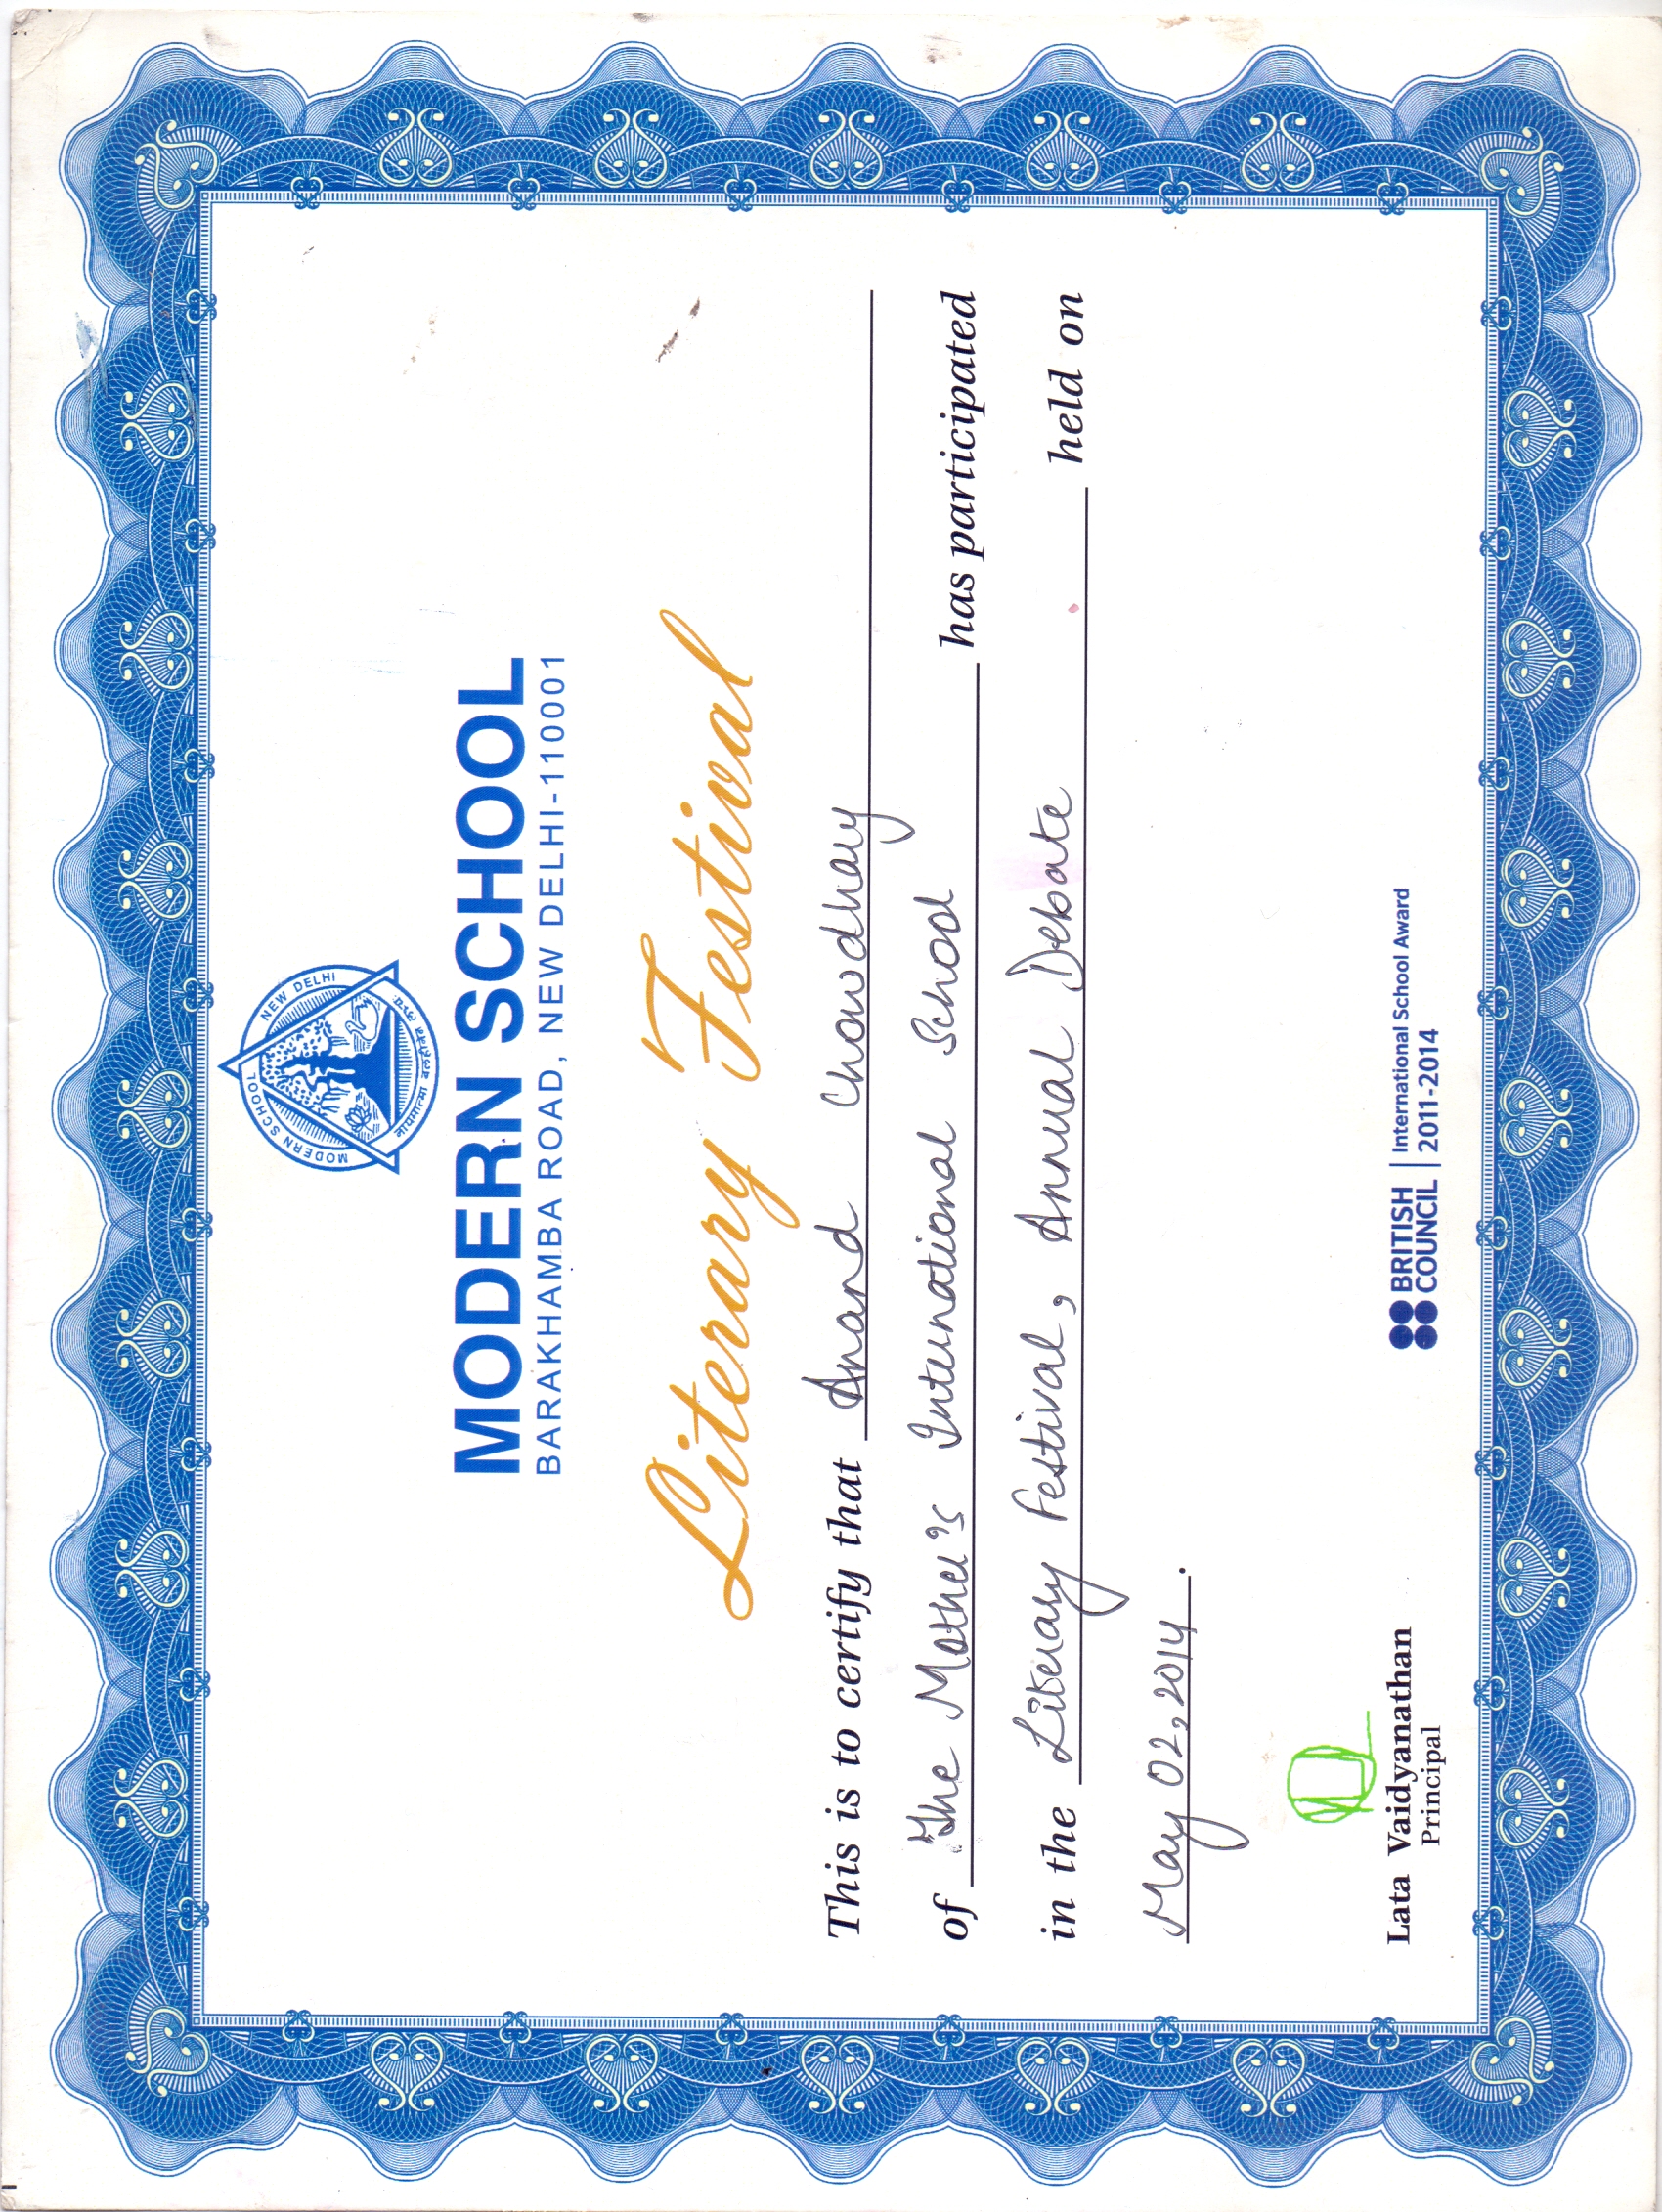 MODERN SCHOOL NEW DELHI
नायमात्मा बलहीनेन लभ्यः
MODERN SCHOOL
BARAKHAMBA ROAD, NEW DELHI-110001
Literary Festival
This is to certify that Anand Chowdhary
of The Mother's International School has participated
in the Literary Festival, Annual Debate held on
May 02, 2014.
Lata Vaidyanathan
Principal
BRITISH COUNCIL
International School Award
2011-2014